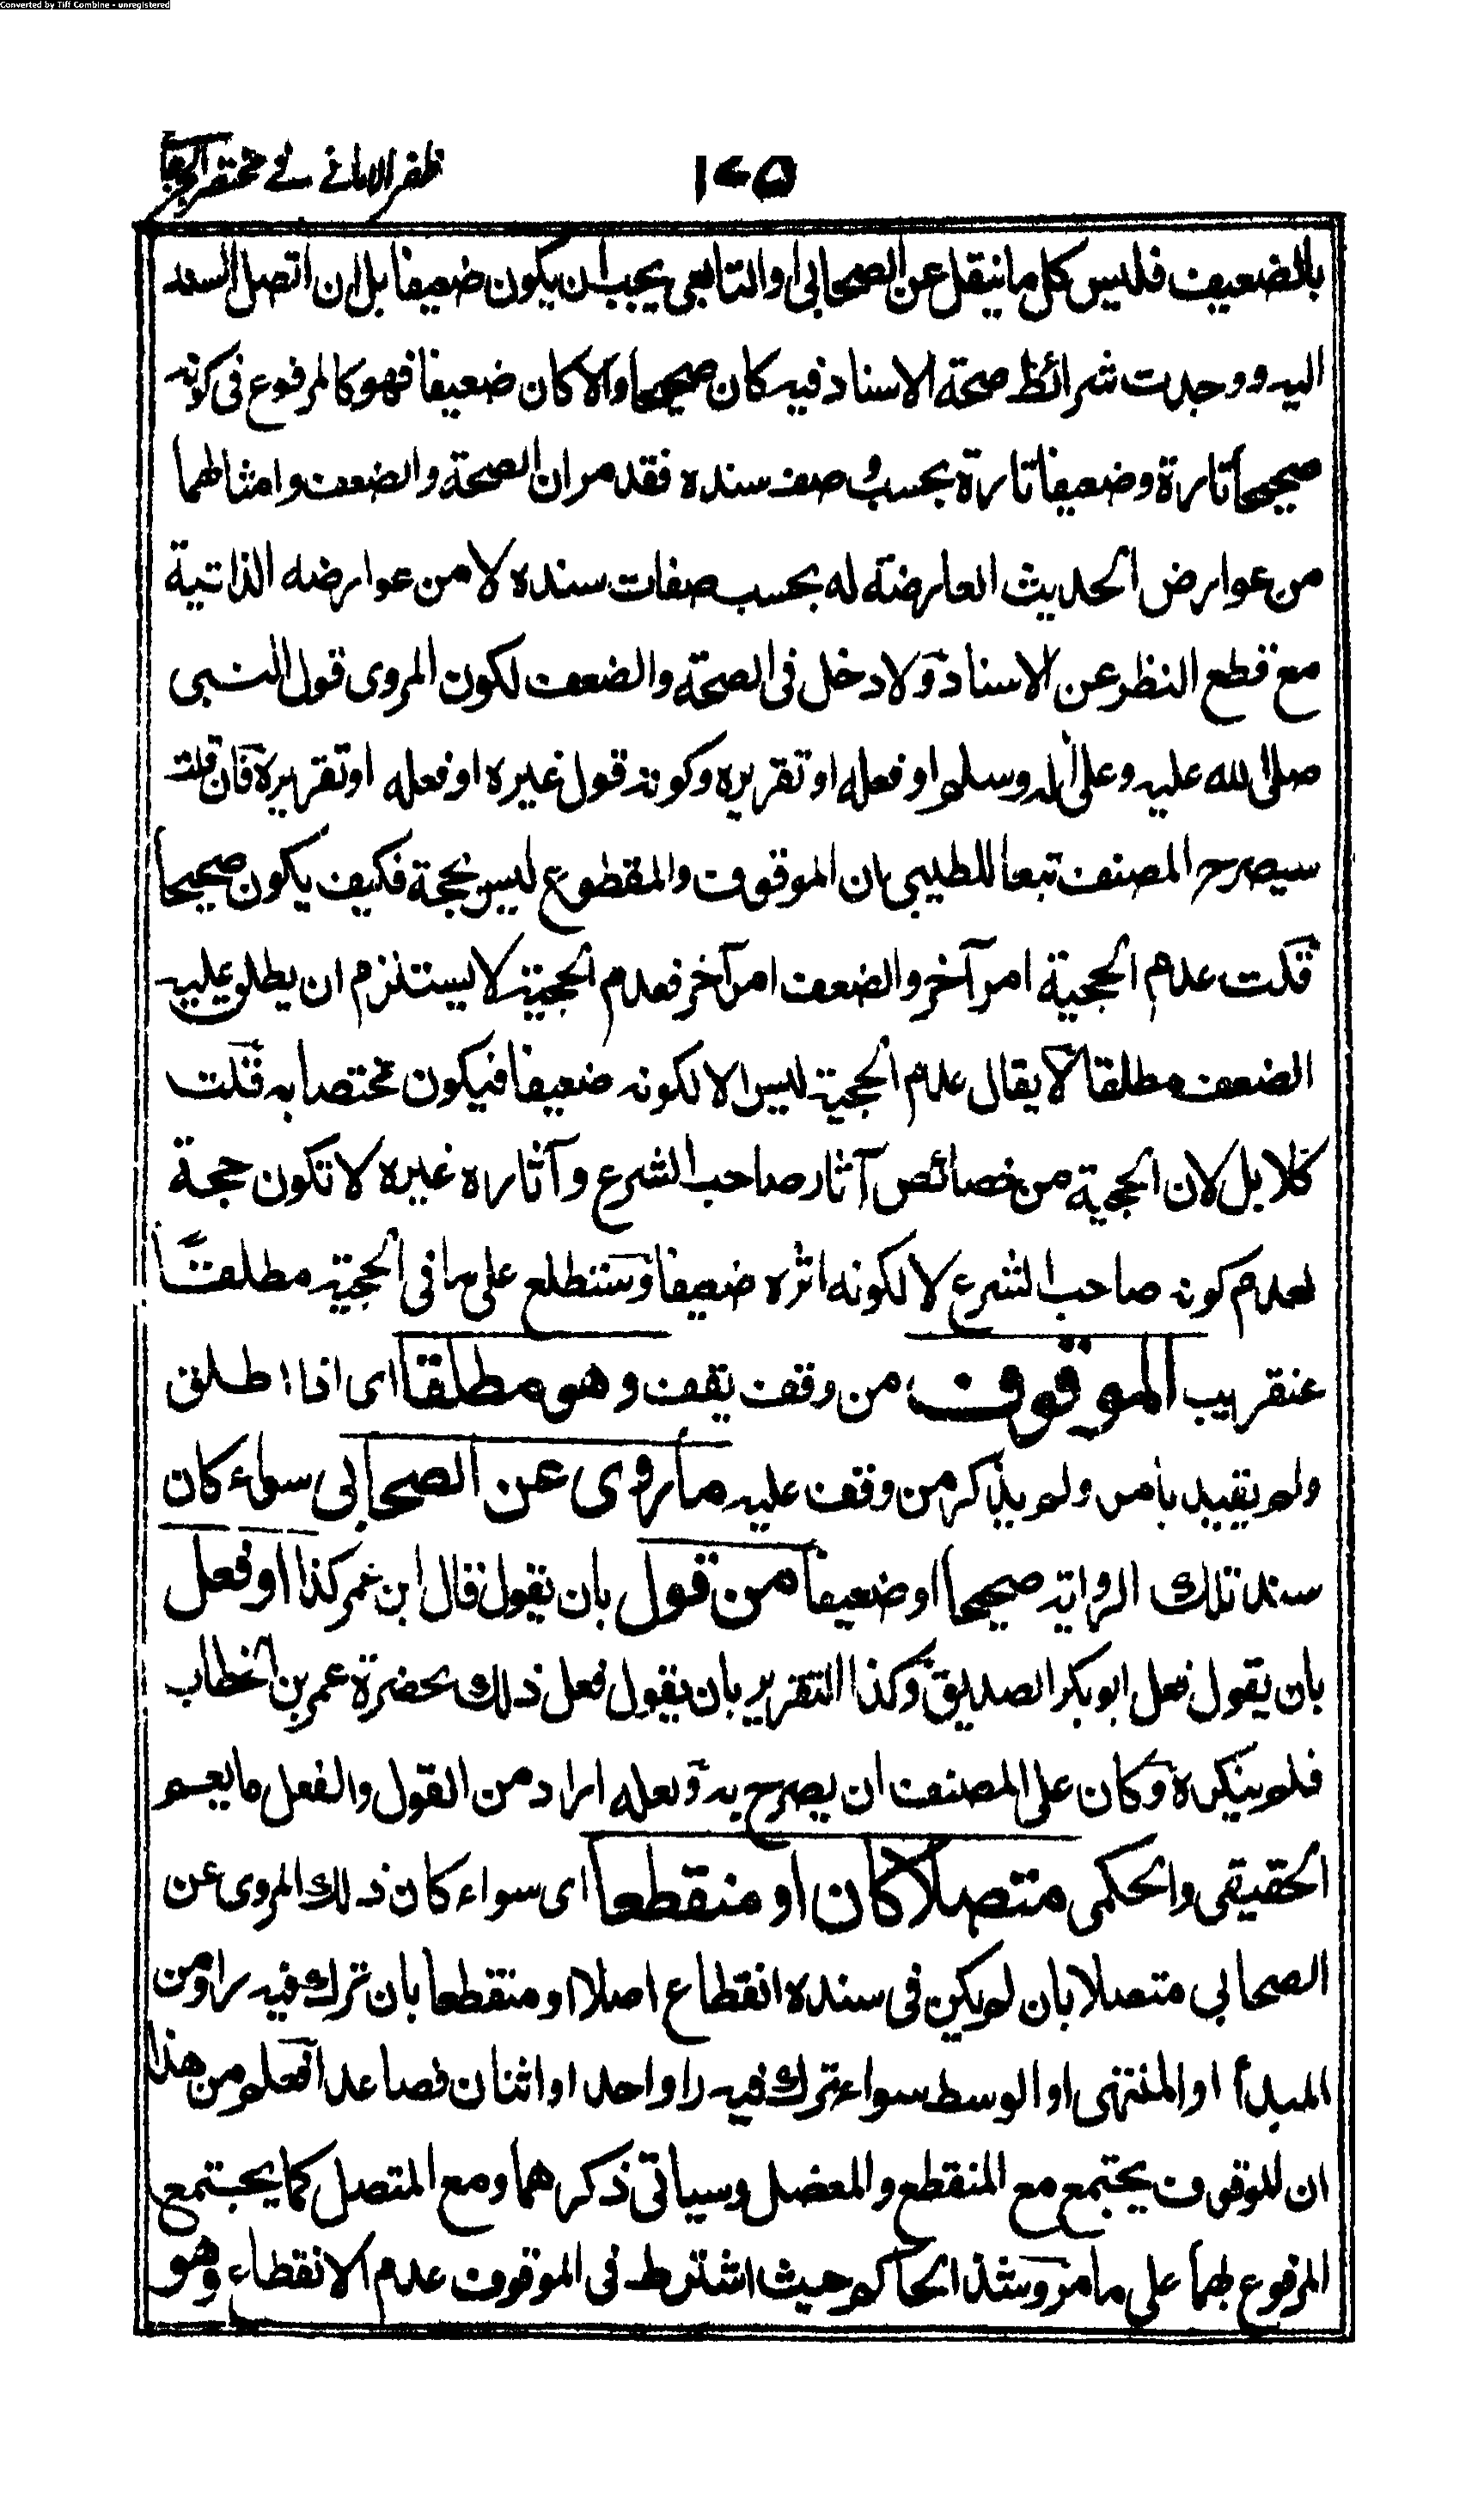 Converted by Tiff Combine - unregistered
ظفر الامانے فے مختصر الجرجانے
١٢٥
بالضعيف فليس كل ما ينقل عن الصحابى او التابعى يجب ان يكون ضعيفا بل ان اتصل السند
اليه ووجدت شرائط صحة الاسناد فيه كان صحيحا والا كان ضعيفا فهو كالمرفوع فى كونه
صحيحا تارة وضعيفا تارة بحسب وصف سنده فقد مر ان الصحة والضعف وامثالهما
من عوارض الحديث العارضة له بحسب صفات سنده لا من عوارضه الذاتية
مع قطع النظر عن الاسناد ولا دخل فى الصحة والضعف لكون المروى قول النبى
صلى الله عليه وعلى آله وسلم او فعله او تقريره وكونه قول غيره او فعله او تقريره فان قلت
سيصرح المصنف تبعا للطيبى بان الموقوف والمقطوع ليس بحجة فكيف يكون صحيحا
قلت عدم الحجية امر آخر والضعف امر آخر فعدم الحجية لا يستلزم ان يطلق عليه
الضعف مطلقا لا يقال عدم الحجية ليس الا لكونه ضعيفا فيكون مختصا به قلت
كلا بل لان الحجية من خصائص آثار صاحب الشرع وآثاره غيره لا تكون حجة
لعدم كونه صاحب الشرع لا لكونه اثره ضعيفا وستطلع على ما فى الحجية مطلقًا
عنقريب الموقوف من وقف يقف وهو مطلقا اى اذا اطلق
ولم يقيد بامر ولم يذكر من وقف عليه ما روى عن الصحابى سواء كان
سند تلك الرواية صحيحا او ضعيفا من قول بان يقول قال ابن عمر كذا او فعل
بان يقول فعل ابو بكر الصديق وكذا التقرير بان يقول فعل ذلك بحضرة عمر بن الخطاب
فلم ينكره وكان على المصنف ان يصرح به ولعله اراد من القول والفعل ما يعم
الحقيقى والحكمى متصلا كان او منقطعا اى سواء كان ذلك المروى عن
الصحابى متصلا بان لم يكن فى سنده انقطاع اصلا او منقطعا بان ترك فيه راو من
المبدأ او المنتهى او الوسط سواء ترك فيه راو احد او اثنان فصاعدا فعلم من هذا
ان الموقوف يجتمع مع المنقطع والمعضل وسياتى ذكرهما ومع المتصل كما يجتمع
المرفوع بهما على ما مر وشذ الحاكم حيث اشترط فى الموقوف عدم الانقطاع وهو